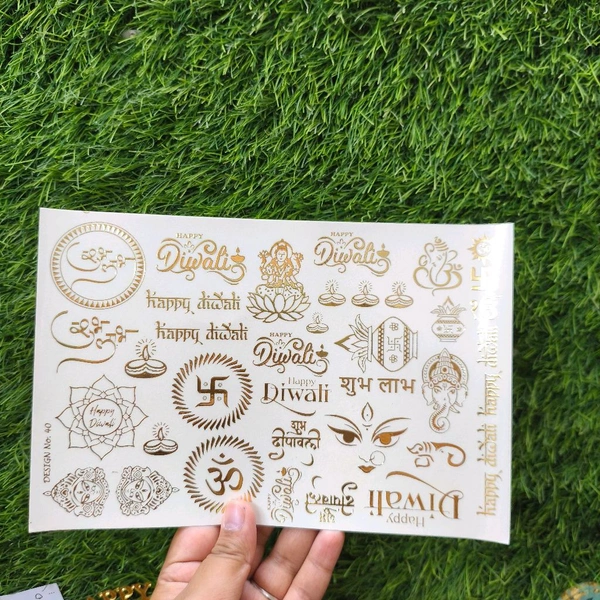 शुभ लाभ
HAPPY
Diwali
HAPPY
Diwali
happy diwali
शुभ लाभ
happy diwali
HAPPY
Diwali
Happy
Diwali
शुभ लाभ
Happy
Diwali
शुभ
दीपावली
ॐ
DESIGN No: 40
happy diwali
happy diwali
Happy
Diwali
शुभ
दीपावली
Diwali